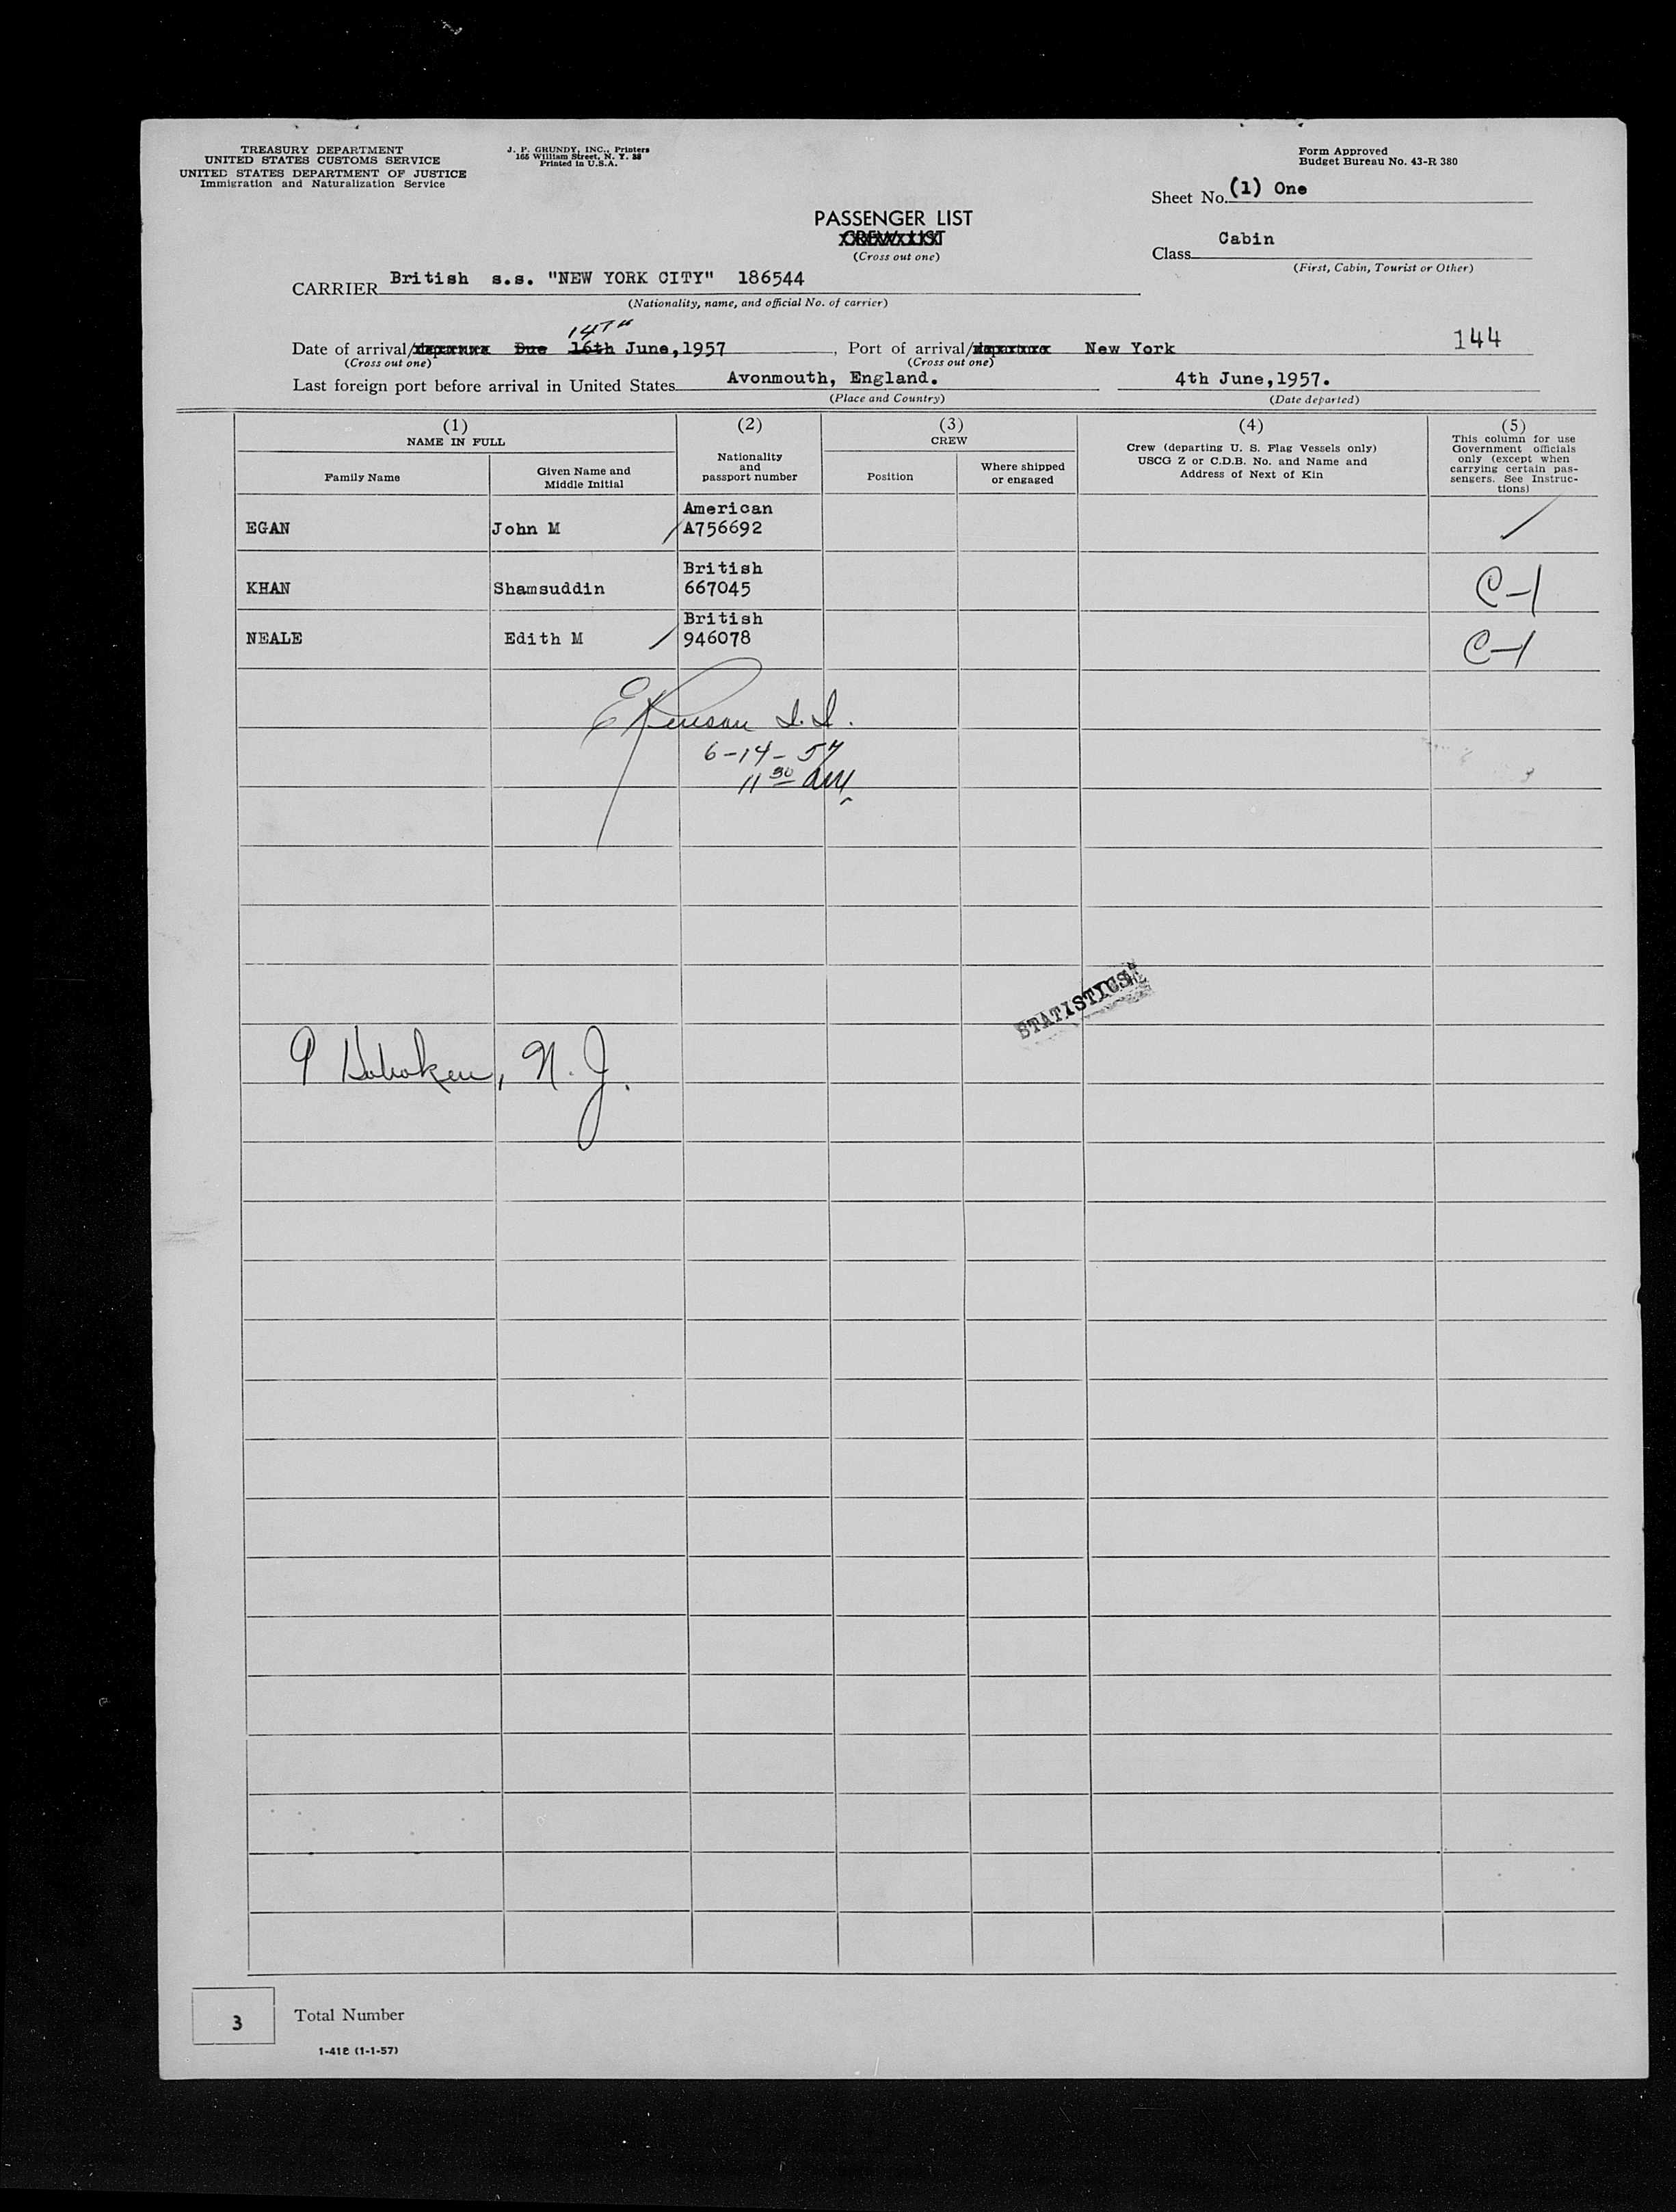 TREASURY DEPARTMENT
UNITED STATES CUSTOMS SERVICE
UNITED STATES DEPARTMENT OF JUSTICE
Immigration and Naturalization Service
J. P. GRUNDY, INC., Printers
165 William Street, N. Y. 38
Printed in U.S.A.
Form Approved
Budget Bureau No. 43-R 380
Sheet No. (1) One
PASSENGER LIST
CREW LIST
(Cross out one)
Class Cabin
(First, Cabin, Tourist or Other)
CARRIER British s.s. "NEW YORK CITY" 186544
(Nationality, name, and official No. of carrier)
14TH
Date of arrival/departure Due 16th June,1957, Port of arrival/departure New York 144
(Cross out one) (Cross out one)
Last foreign port before arrival in United States Avonmouth, England. 4th June,1957.
(Place and Country) (Date departed)
(1) (2) (3) (4) (5)
NAME IN FULL
Family Name
Given Name and
Middle Initial
Nationality
and
passport number
CREW
Position
Where shipped
or engaged
Crew (departing U. S. Flag Vessels only)
USCG Z or C.D.B. No. and Name and
Address of Next of Kin
This column for use
Government officials
only (except when
carrying certain pas-
sengers. See Instruc-
tions)
American
EGAN John M A756692
British
KHAN Shamsuddin 667045 C-1
British
NEALE Edith M 946078 C-1
6-14-57
11 30 AM
STATISTICS
P Hoboken, N. J.
3 Total Number
I-418 (1-1-57)